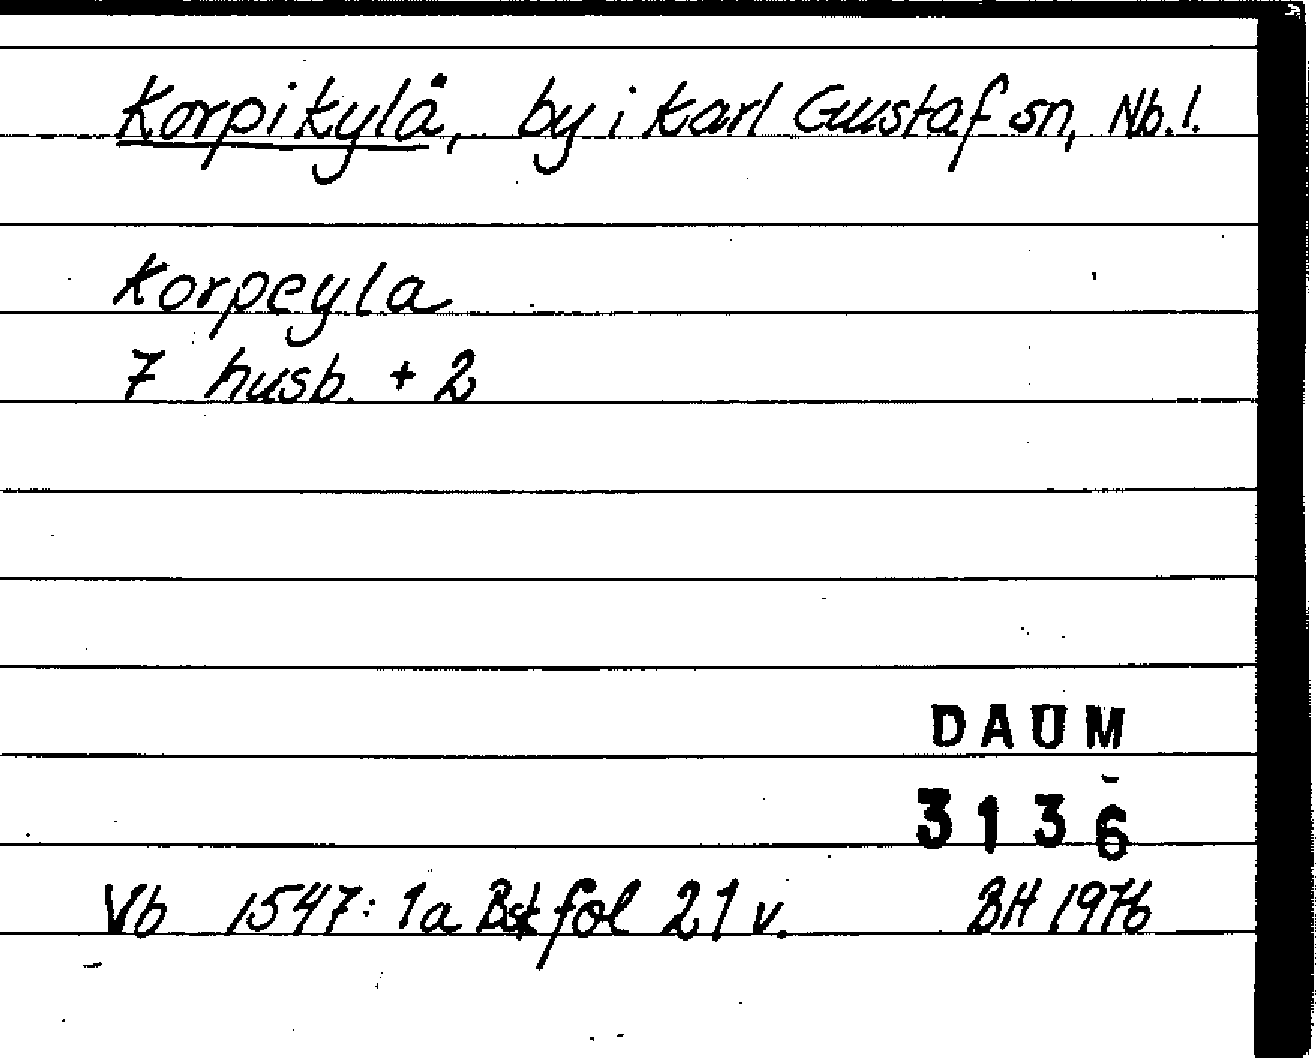 Korpikylä, by i Karl Gustaf sn, Nb.l.
Korpeyla
7 husb. + 2
DAUM
3136
Vb 1547: 1a Bsk fol 21 v. BH 1976